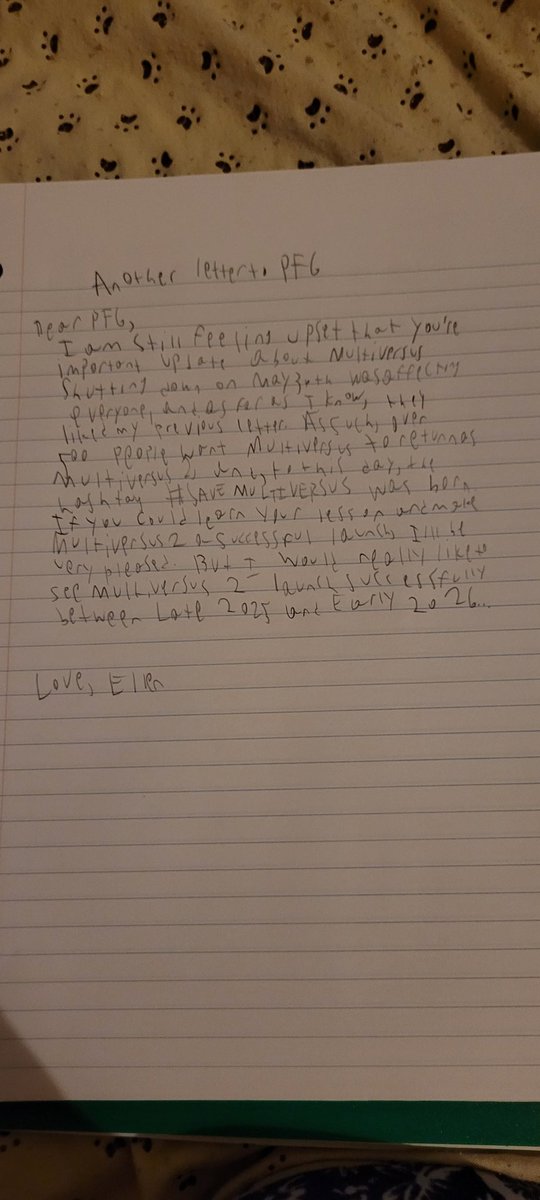 Another letter to PFG
Dear PFG,
I am still feeling upset that you're
important update about Multiversus
shutting down on May 30th was affecting
everyone, and as far as I know, they
liked my previous letter. As such, over
500 people want Multiversus to return as
Multiversus 2 and, to this day, the
hashtag #SAVEMULTIVERSUS was born
If you could learn your lesson and make
Multiversus 2 a successful launch, I'll be
very pleased. But I would really like to
see Multiversus 2 launch successfully
between Late 2025 and Early 2026...
Love, Ellen